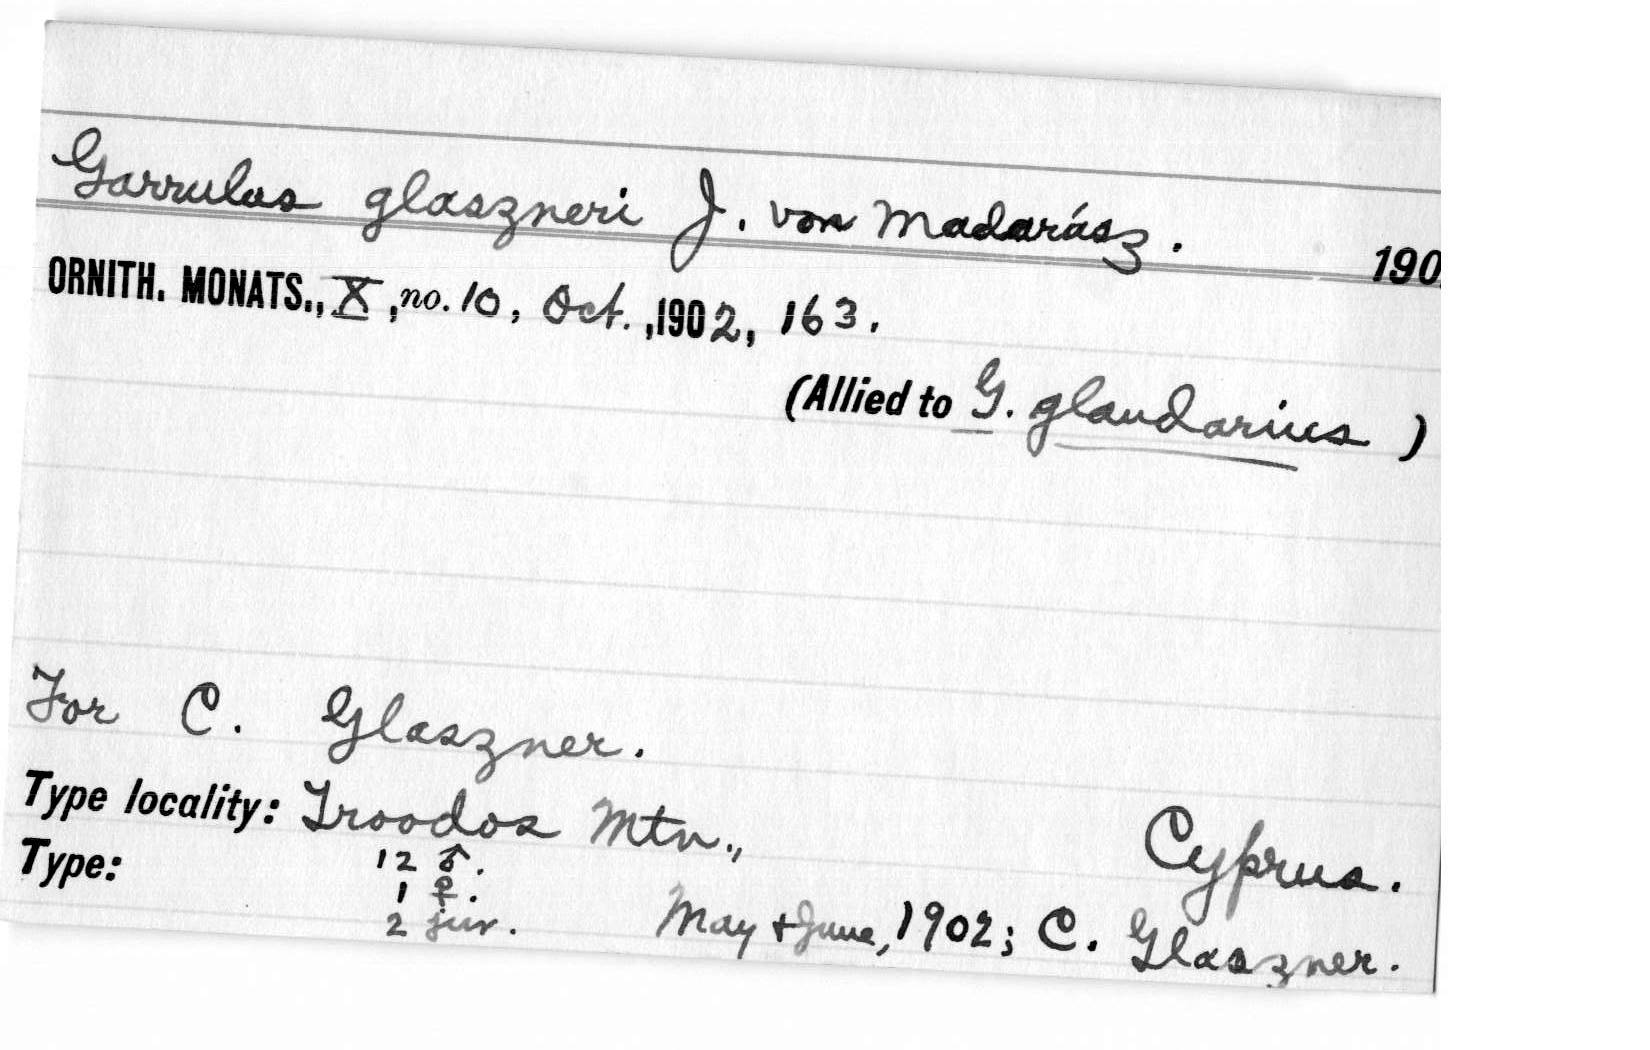 Garrulus glaszneri J. von Madarász. 190
ORNITH. MONATS., X, no. 10, Oct., 1902, 163.
(Allied to G. glandarius )
For C. Glaszner.
Type locality: Troodos Mtn., Cyprus.
Type: 12 ♂.
1 ♀.
2 juv. May + June, 1902; C. Glaszner.